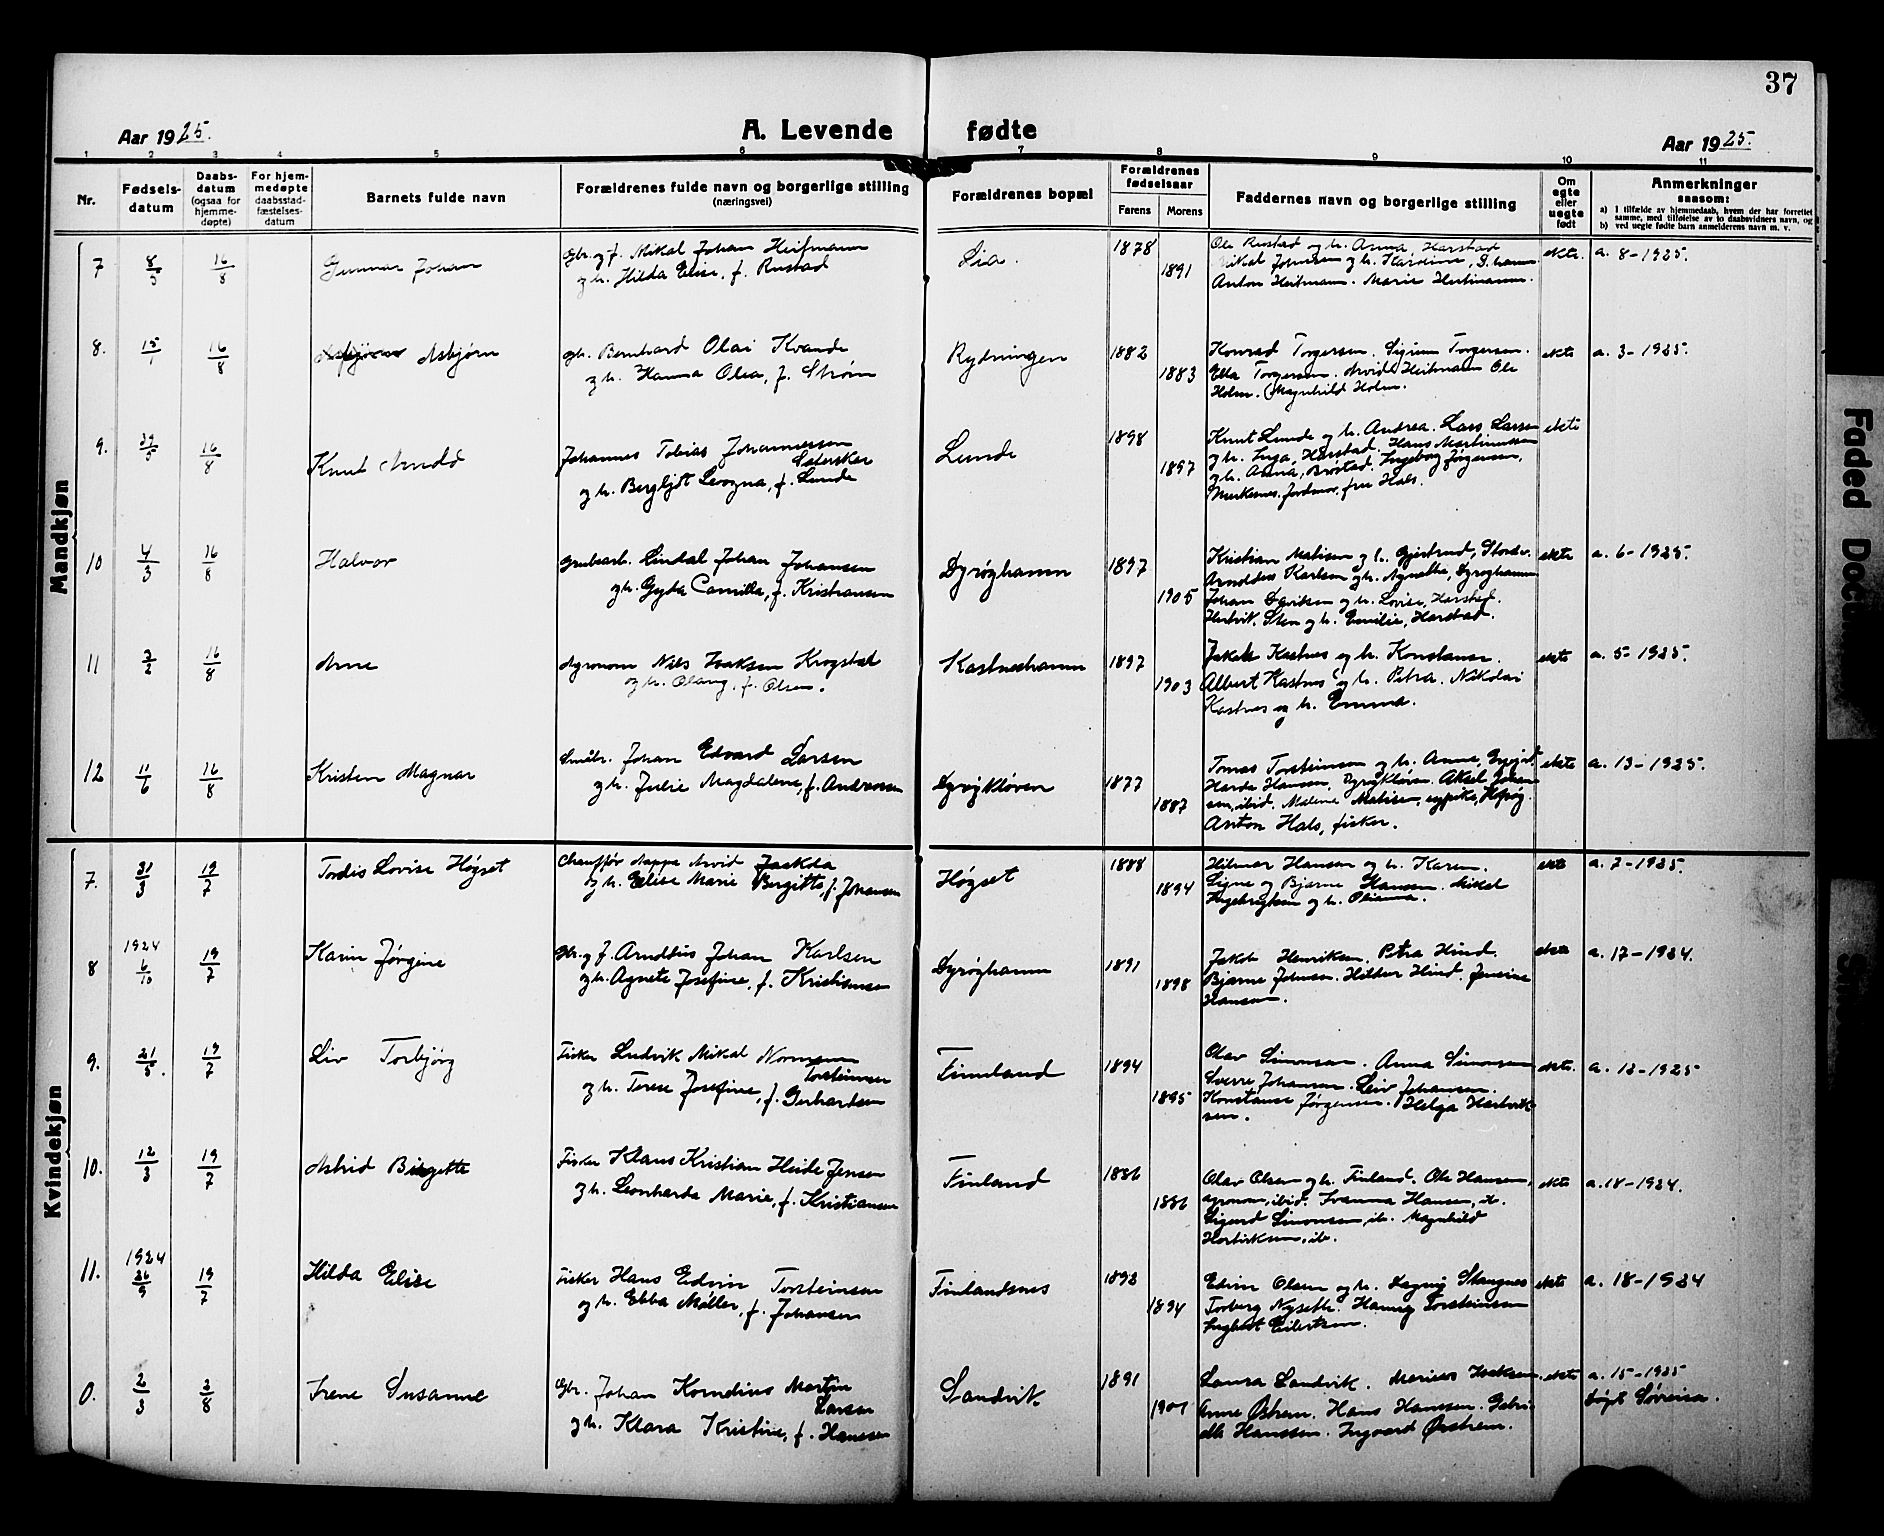 37
Aar 1925. A. Levende fødte Aar 1925.
1 2 3 4 5 6 7 8 9 10 11
Nr. Fødsels-datum Daabs-datum (ogsaa for hjemme-døpte) For hjem-medøpte daabsstad-fæstelses-datum Barnets fulde navn Forældrenes fulde navn og borgerlige stilling (næringsvei) Forældrenes bopæl Forældrenes fødselsaar Farens Morens Faddernes navn og borgerlige stilling Om egte eller uegte født Anmerkninger saasom: a) I tilfælde av hjemmedaab, hvem der har forrettet samme, med tilføielse av to daabsvidners navn, og b) ved uegte fødte barn anmelderens navn m. v.
Mandkjøn
7 8/3 16/8 Gunnar Johan Gbr. og f. Mikal Johan Heitmann Lia. 1878 Ole Rustad og h. Anna, Harstad ekte. a. 8-1925.
og h. Hilda Elise, f. Rustad 1891 Mikal Johnsen og h.
Anton Heitmann. Marie Heitmann.
8. 15/1 16/8 Asbjørn gbr. Bernhard Olai Kvande Rydningen 1882 Konrad Torgersen. Sigrun Torgersen. ekte a. 3-1925.
og h. Hanna Olea, f. Strøm 1883 Ella Torgersen. Arvid Heitmann Ole
Holm. Magnhild Holm.
9. 29/5 16/8 Knut Arnold Johannes Tobias Johannessen Lunde 1898 Knut Lunde og h. Andrea. Lars Larsen ekte
Sæterskar 1897 og h. Inga, Harstad. Hans Martinussen
og h. Bergljot Leogna, f. Lunde og h. Anna, Brøstad. Ingeborg Jørgensen,
Jordmor, fru Hals.
10 4/3 16/8 Halvor grubearb. Lindal Johan Johansen Dyrøyhamn 1897 Kristian Matisen og h. Gjertrud, ekte a. 6-1925.
og h. Gyda Camilla, f. Kristiansen 1905 Arnddeus Karlsen og h. Agnethe, Dyrøyhamn
Johan Davidsen og h. Lovise, Harstad.
Hartvik Sten og h. Emilie, Harstad.
11 7/2 16/8 Arne Agronom Nils Isaksen Krogstad Kastneshamn 1897 Jakob Kastnes og h. Konstanse. ekte a. 5-1925.
og h. Olaug, f. Olsen. 1903 Albert Kastnes og h. Petra. Nikolai
Kastnes og h. Emma.
12 11/6 16/8 Kristen Magnar Småbr. Johan Edvard Larsen Dyrøykløven 1877 Tomas Torsteinsen og h. Anna, ekte a. 13-1925.
og h. Julie Magdalene, f. Andreassen 1887 Hansen, Dyrøykløven. Aksel Johan-
sen, ibid. Malene Matisen,
Anton Hals, fisker.
Kvindekjøn
7. 31/3 19/7 Tordis Lovise Høgset Chauffør Arvid Høgset 1888 Hilmar Hansen og h. Karen. ekte a. 7-1925.
og h. Elise Marie Birgitte, f. Johansen 1894 Signe og Bjarne Hansen. Mikal
Ingebrigtsen og h. Olianna.
8 1924 6/10 19/7 Karin Jørgine Gbr. og f. Arnddius Johan Karlsen Dyrøyhamn 1891 Jakob Henriksen. Petra Hind. ekte a. 17-1924.
og h. Agnete Josefine, f. Kristiansen 1898 Bjarne Johnsen. Hilbur Hind. Jensine
Hansen.
9. 21/5. 19/7 Liv Torbjørg Fisker Ludvik Mikal Normann Finnland 1894 Olav Simonsen. Anna Simonsen ekte. a. 12-1925
Torsteinsen Sverre Johansen. Leiv Johansen.
og h. Terese Josefine, f. Gerhardsen 1895 Konstanse Jørgensen. Helga Hartvik-
sen.
10. 12/3 19/7 Astrid Birgitte Fisker Klaus Kristian Heide Jensen Finland 1886 Olav Olsen og h. Finland. Ole Hansen, ekte a. 18-1924.
og h. Leonharda Marie, f. Kristiansen 1886 agronom, ibid. Ivanna Hansen, ib.
Sigurd Simonsen, ib. Magnhild
Hartviksen, ib.
11. 1924 26/9 19/7 Hilda Elise Fisker Hans Edvin Torsteinsen Finlandsnes 1892 Edvin Olsen og h. Dagny Stangnes ekte a. 18-1924
og h. Ebba Møller, f. Johansen 1894 Torberg Nyseth. Hanny Torsteinsen
Eilertsen.
0. 2/3 2/8 Irene Susanne Gbr. Johan Kornelius Martin Sandvik 1891 Laura Sandvik. Marius Isaksen. ekte a. 15-1925
Larsen 1901 Anne Østrem. Hans Hanssen. døpt Sørreisa.
og h. Klara Kristine, f. Hanssen Hanssen. Ingvard Østrem.
Faded Docu